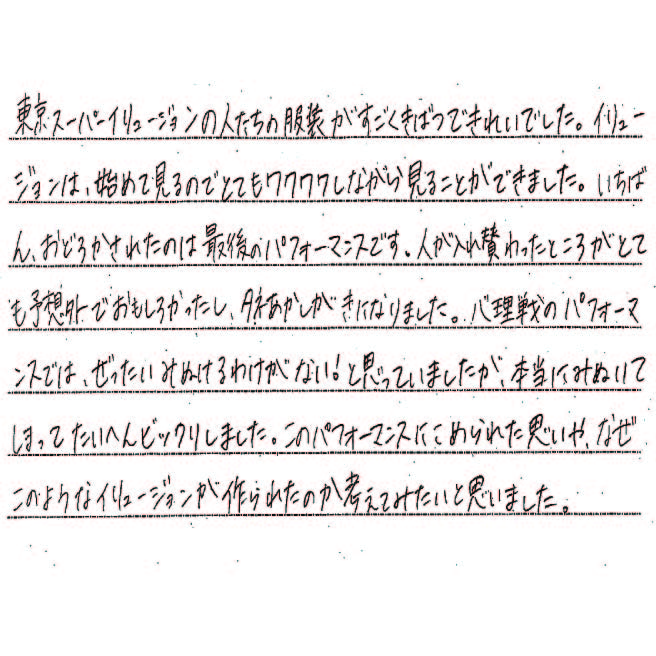 東京スーパーイリュージョンの人たちの服装がすごくきばつできれいでした。イリュー
ジョンは、始めて見るのでとてもワクワクしながら見ることができました。いちば
ん、おどろかされたのは最後のパフォーマンスです。人が入れ賛わったところがとて
も予想外でおもしろかったし、タネあかしがきになりました。心理戦のパフォーマ
ンスでは、ぜったいみぬけるわけがない!と思っていましたが、本当にみぬいて
しまってたいへんビックリしました。このパフォーマンスにこめられた思いや、なぜ
このようなイリュージョンが作られたのか考えてみたいと思いました。